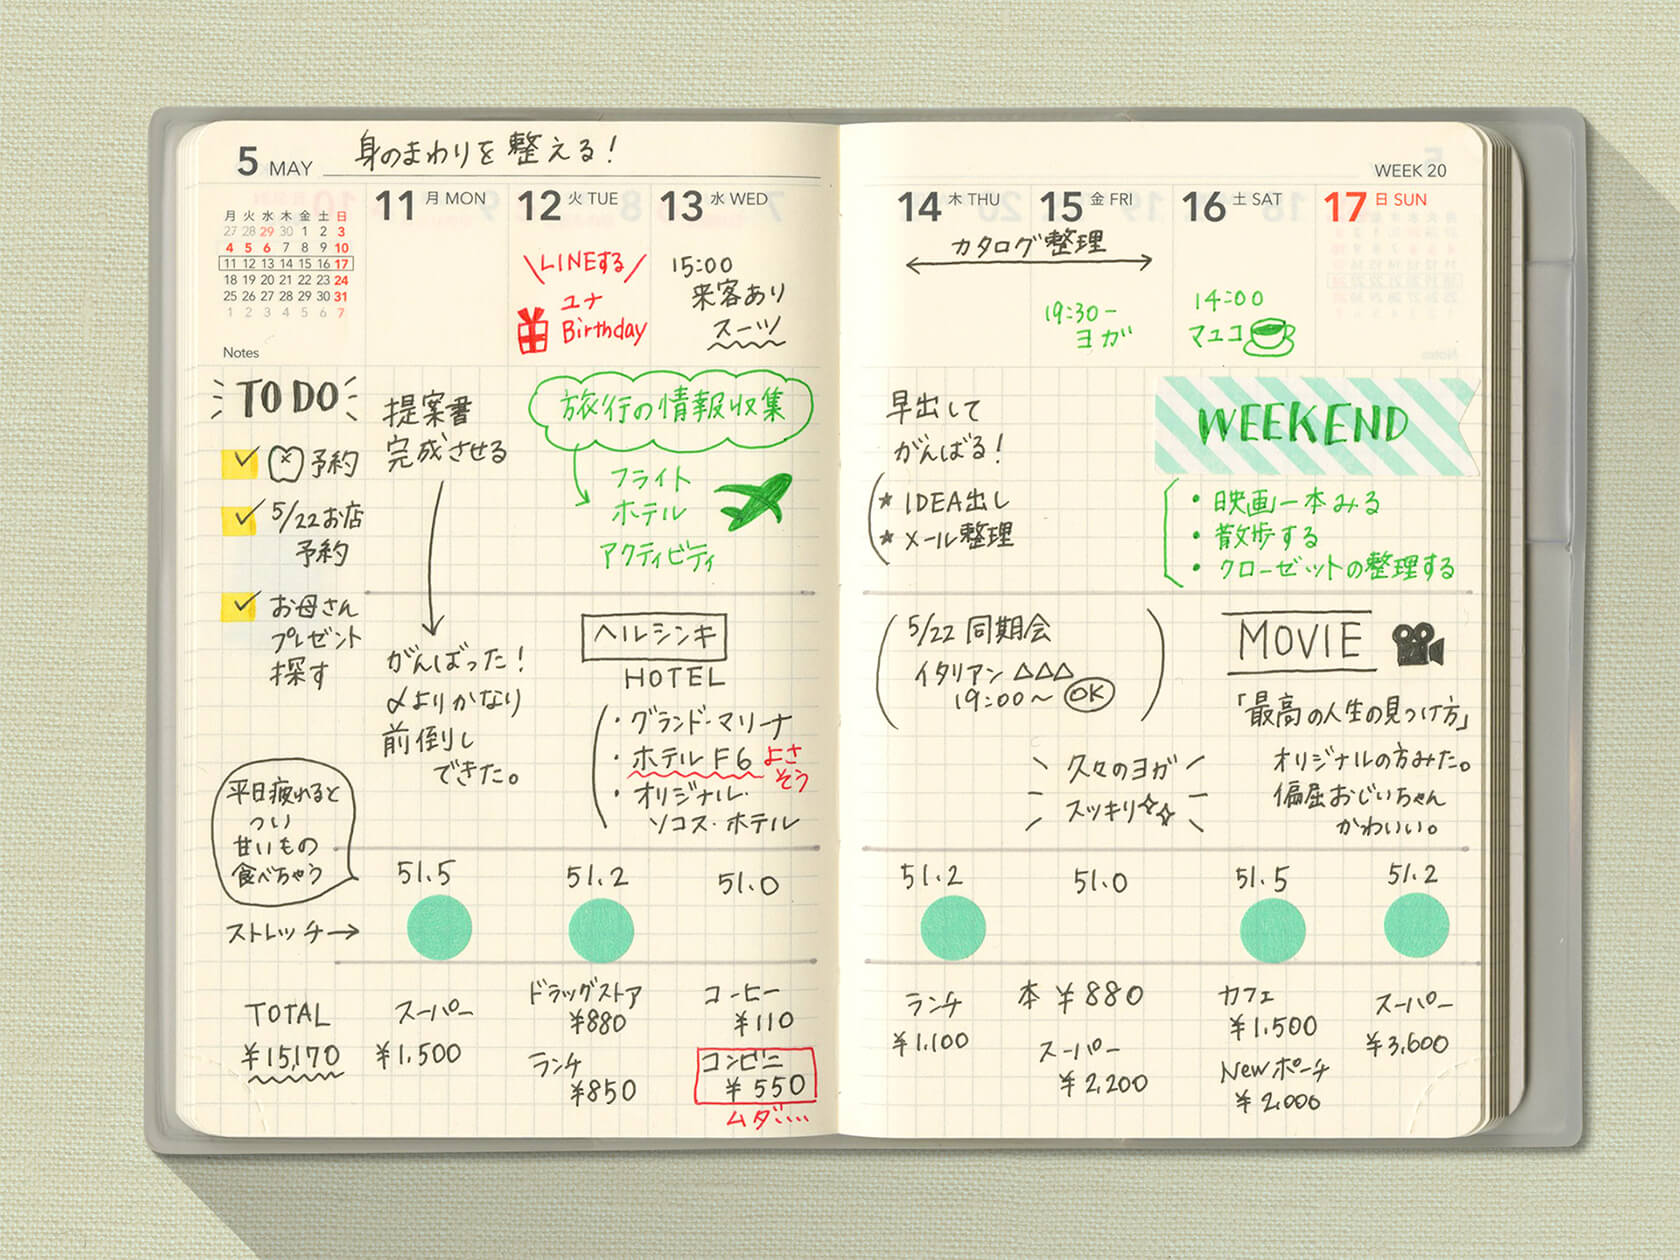 5 MAY 身のまわりを整える!
月 火 水 木 金 土 日
27 28 29 30 1 2 3
4 5 6 7 8 9 10
11 12 13 14 15 16 17
18 19 20 21 22 23 24
25 26 27 28 29 30 31
1 2 3 4 5 6 7
Notes
11 月 MON
12 火 TUE
LINEする
ユナ
Birthday
13 水 WED
15:00
来客あり
スーツ
TO DO
予約
5/22お店
予約
お母さん
プレゼント
探す
提案書
完成させる
がんばった!
〆よりかなり
前倒し
できた。
旅行の情報収集
フライト
ホテル
アクティビティ
ヘルシンキ
HOTEL
・グランド・マリーナ
・ホテルF6 よさ
そう
・オリジナル・
ソコス・ホテル
平日疲れると
つい
甘いもの
食べちゃう
51.5
51.2
51.0
ストレッチ→
TOTAL
¥15,170
スーパー
¥1,500
ドラッグストア
¥880
ランチ
¥850
コーヒー
¥110
コンビニ
¥550
ムダ....
WEEK 20
14 木 THU
15 金 FRI
16 土 SAT
17 日 SUN
カタログ整理
19:30-
ヨガ
14:00
マユコ
早出して
がんばる!
★ IDEA出し
★ メール整理
WEEKEND
・映画一本みる
・散歩する
・クローゼットの整理する
5/22 同期会
イタリアン △△△
19:00〜 OK
久々のヨガ
スッキリ
MOVIE
「最高の人生の見つけ方」
オリジナルの方みた。
偏屈おじいちゃん
かわいい。
51.2
51.0
51.5
51.2
ランチ
¥1,100
本 ¥880
スーパー
¥2,200
カフェ
¥1,500
Newポーチ
¥2,000
スーパー
¥3,600